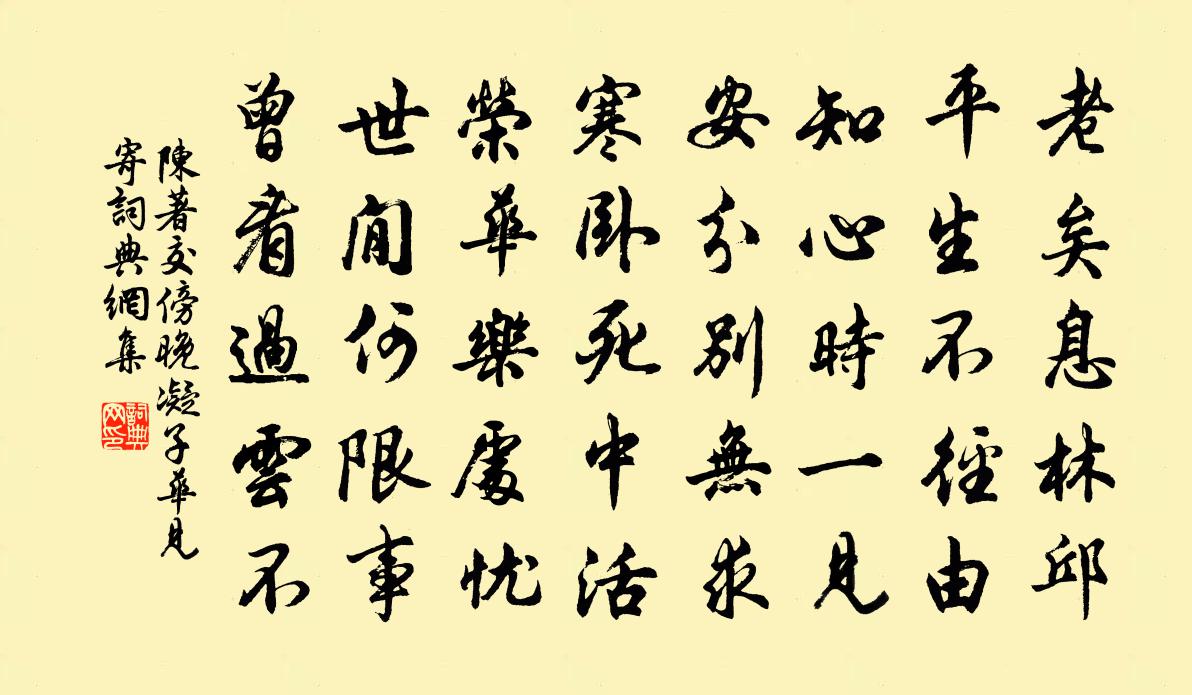 老矣息林邱
平生不徑由
知心時一見
安分別無求
寒臥死中活
榮華樂處忧
世間何限事
曾看過雲不
陳著交傍晚凝子華見
寄詞典網集
詞典网印